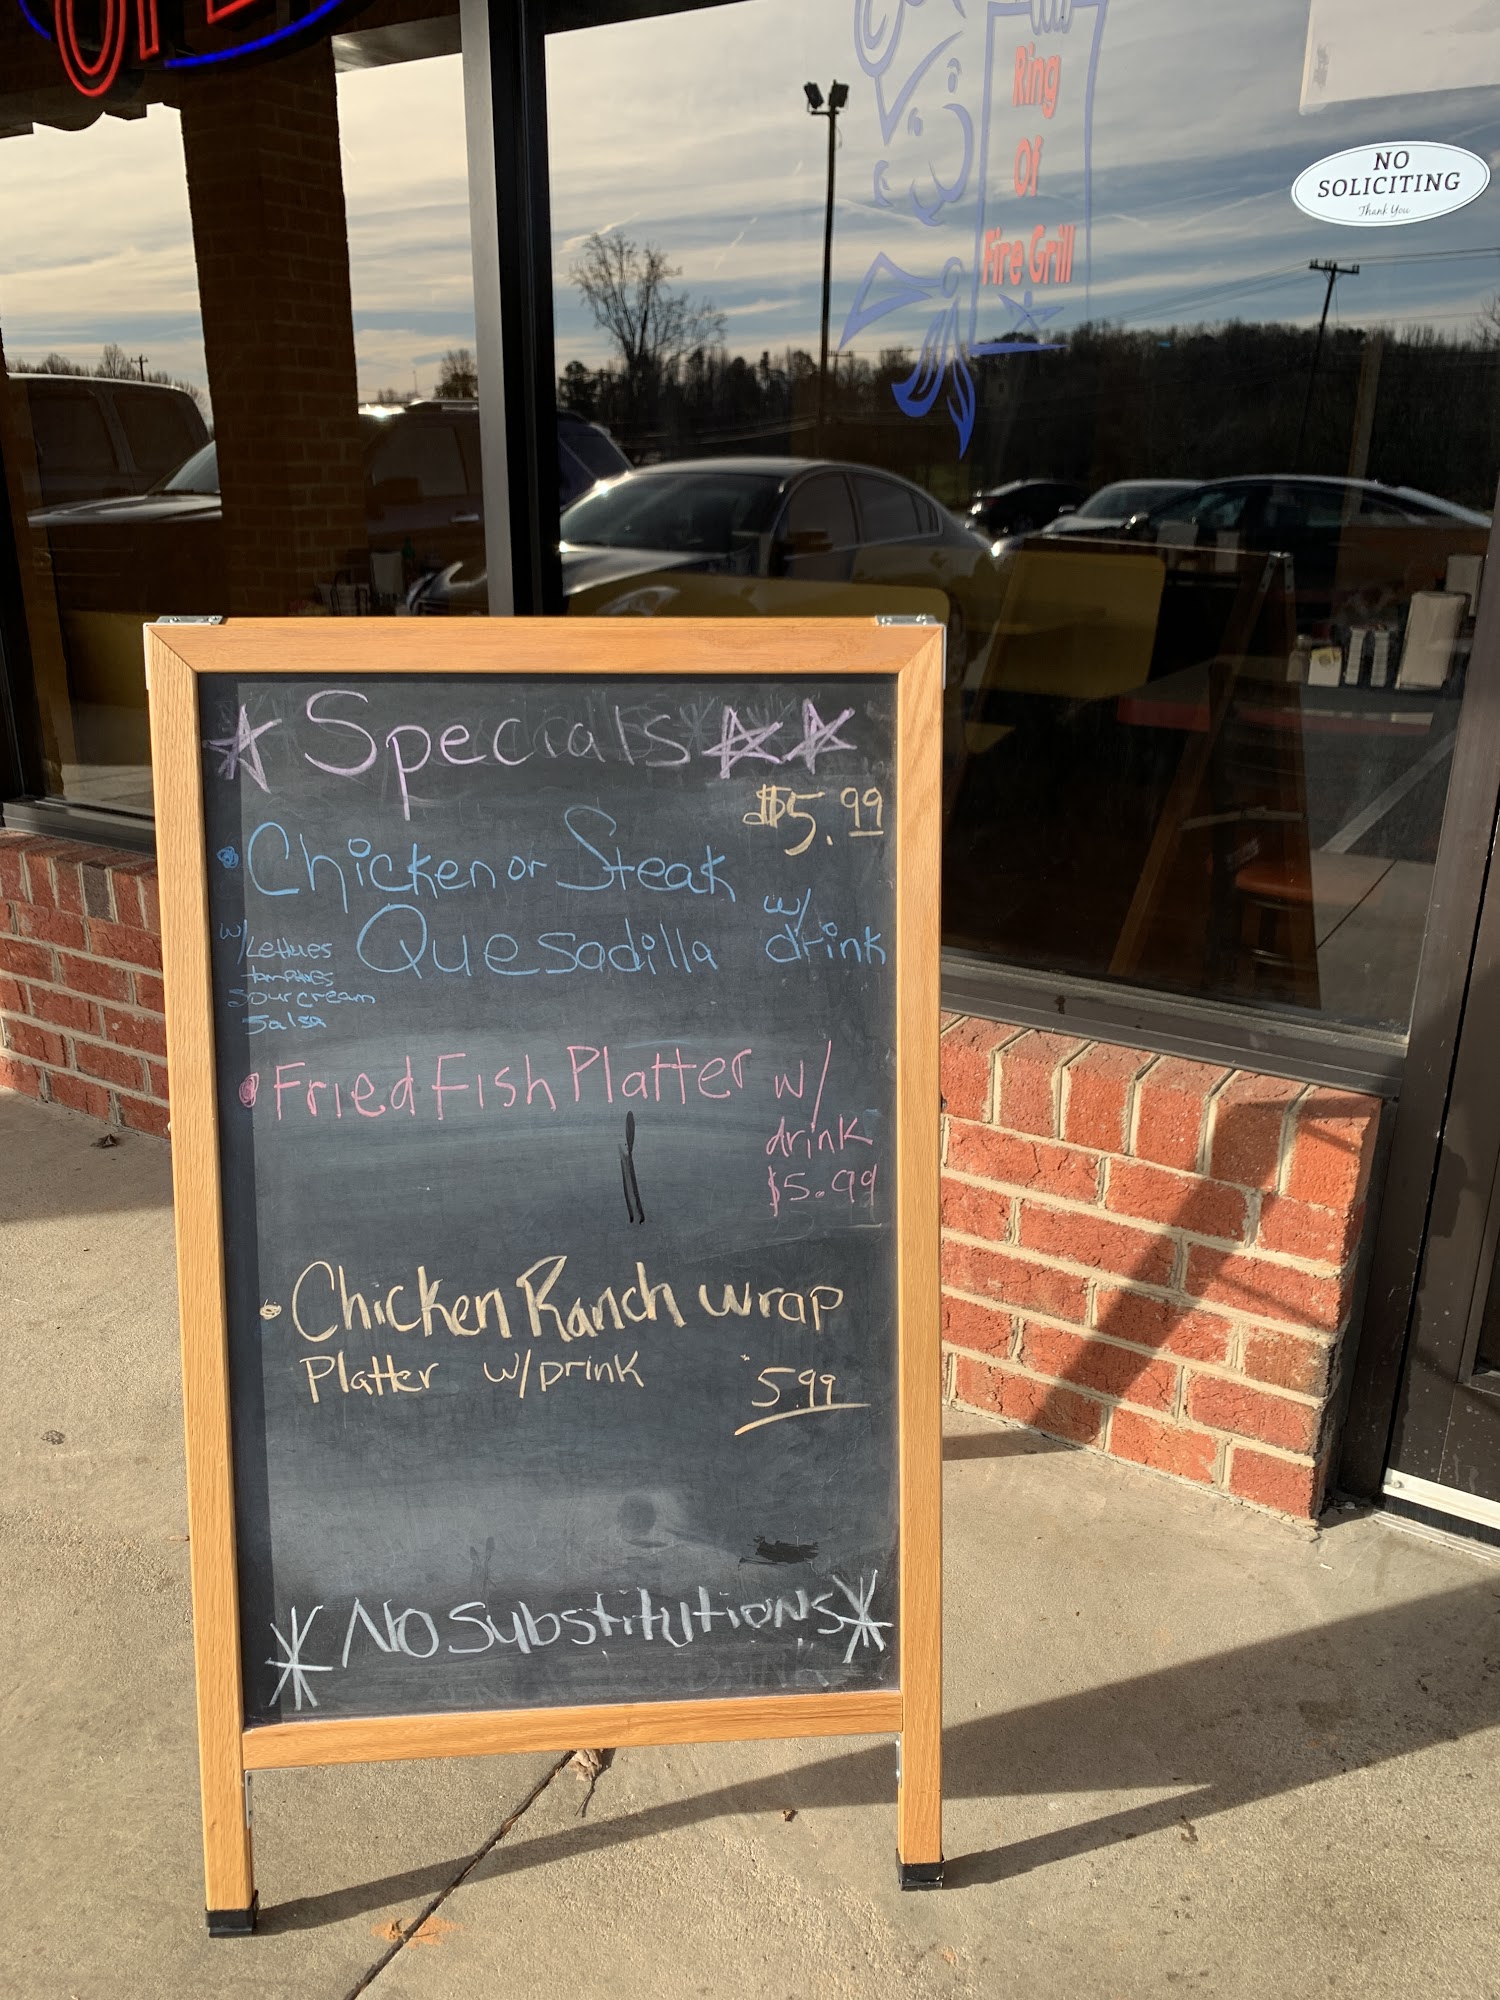 Ring
Of
Fire Grill
NO
SOLICITING
Thank You
Specials
$5.99
Chicken or Steak
Quesadilla w/ drink
w/ Lettues
tomatoes
Sour cream
Salsa
Fried Fish Platter w/
drink
$5.99
Chicken Ranch wrap
Platter w/ Drink 5.99
*No Substitutions*